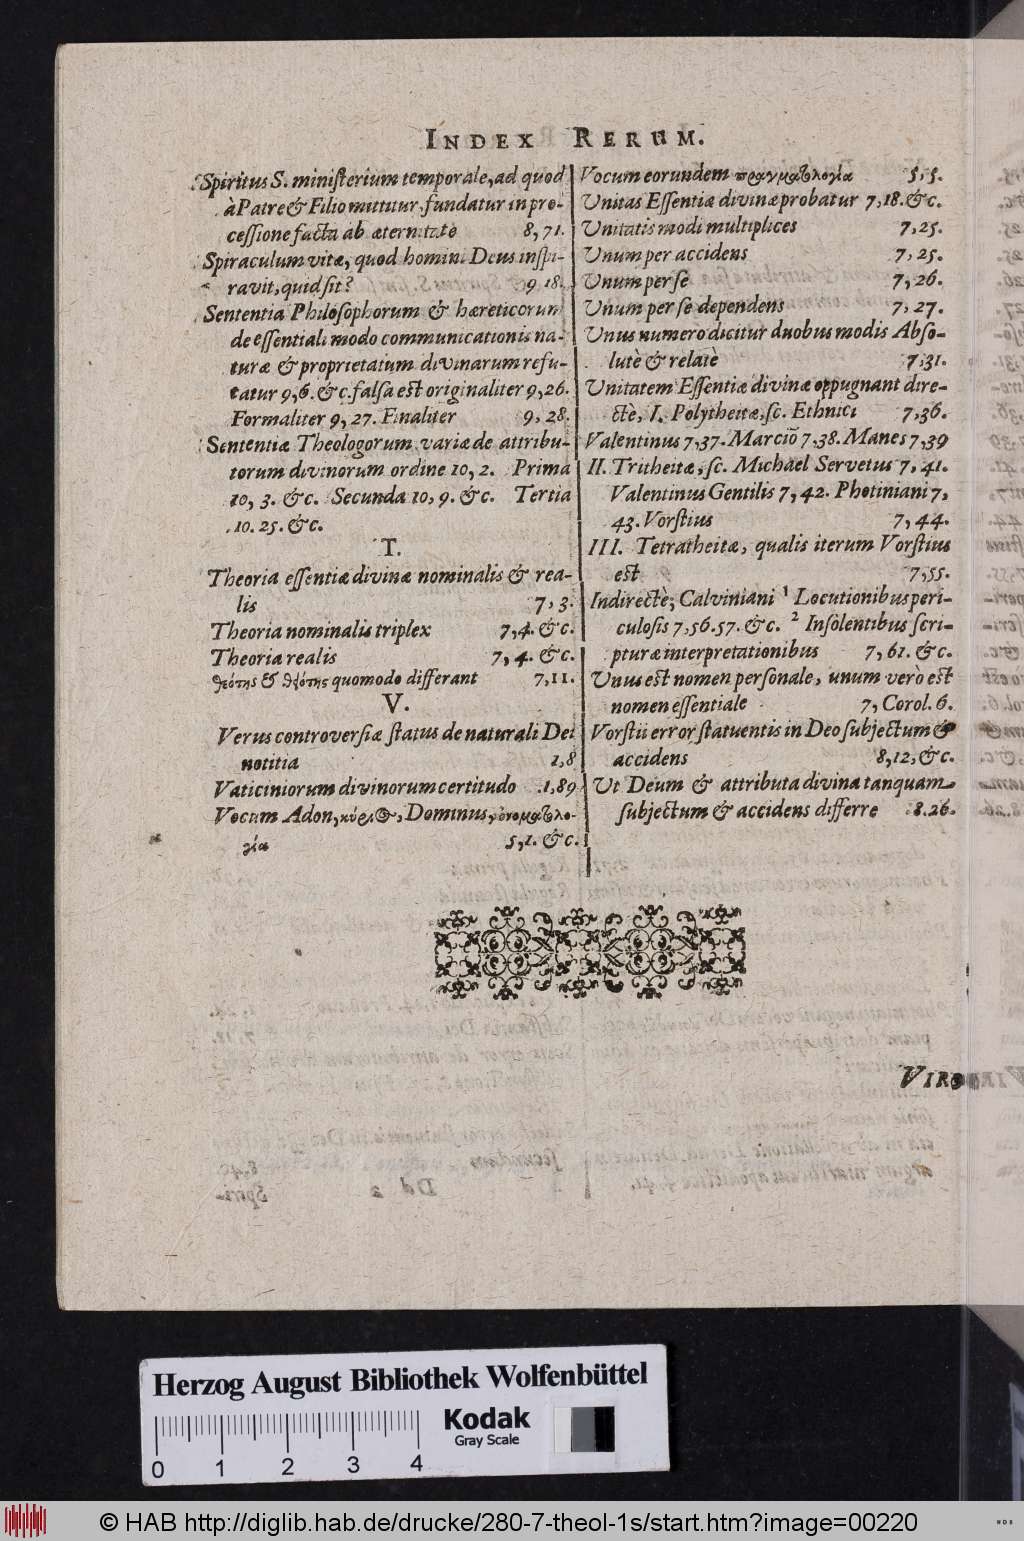 INDEX RERUM.
Spiritus S. ministerium temporale, ad quod
à Patre & Filio mittitur, fundatur in pro-
cessione facta ab æternitate 8, 71.
Spiraculum vitæ, quod homini Deus inspi-
ravit, quid sit? 9 18.
Sententia Philosophorum & hæreticorum
de essentiali modo communicationis na-
turæ & proprietatum divinarum refu-
tatur 9, 6. &c. falsa est originaliter 9, 26.
Formaliter 9, 27. Finaliter 9, 28.
Sententiæ Theologorum variæ de attribu-
torum divinorum ordine 10, 2. Prima
10, 3. &c. Secunda 10, 9. &c. Tertia
10. 25. &c.
T.
Theoria essentiæ divinæ nominalis & rea-
lis 7, 3.
Theoria nominalis triplex 7, 4. &c.
Theoria realis 7, 4. &c.
θεότης & θειότης quomodo differant 7, 11.
V.
Verus controversiæ status de naturali Dei
notitia 1, 8
Vaticiniorum divinorum certitudo 1, 89
Vocum Adon, κύριος, Dominus, ὀνοματολο-
γία 5, 1. &c.
Vocum eorundem πραγματολογία 5, 5.
Unitas Essentiæ divinæ probatur 7, 18. &c.
Unitatis modi multiplices 7, 25.
Unum per accidens 7, 25.
Unum per se 7, 26.
Unum per se dependens 7, 27.
Unus numero dicitur duobus modis Abso-
lutè & relatè 7, 31.
Unitatem Essentiæ divinæ oppugnant dire-
ctè, I. Polytheitæ, sc. Ethnici 7, 36.
Valentinus 7, 37. Marciō 7, 38. Manes 7, 39
II. Tritheitæ, sc. Michael Servetus 7, 41.
Valentinus Gentilis 7, 42. Photiniani 7,
43. Vorstius 7, 44.
III. Tetratheitæ, qualis iterum Vorstius
est 7, 55.
Indirectè, Calviniani 1 Locutionibus peri-
culosis 7, 56. 57. &c. 2 Insolentibus scri-
pturæ interpretationibus 7, 61. &c.
Unus est nomen personale, unum verò est
nomen essentiale 7, Corol. 6.
Vorstii error statuentis in Deo subjectum &
accidens 8, 12, &c.
Ut Deum & attributa divina tanquam
subjectum & accidens differre 8. 26.
Herzog August Bibliothek Wolfenbüttel
Kodak
Gray Scale
0 1 2 3 4
© HAB http://diglib.hab.de/drucke/280-7-theol-1s/start.htm?image=00220